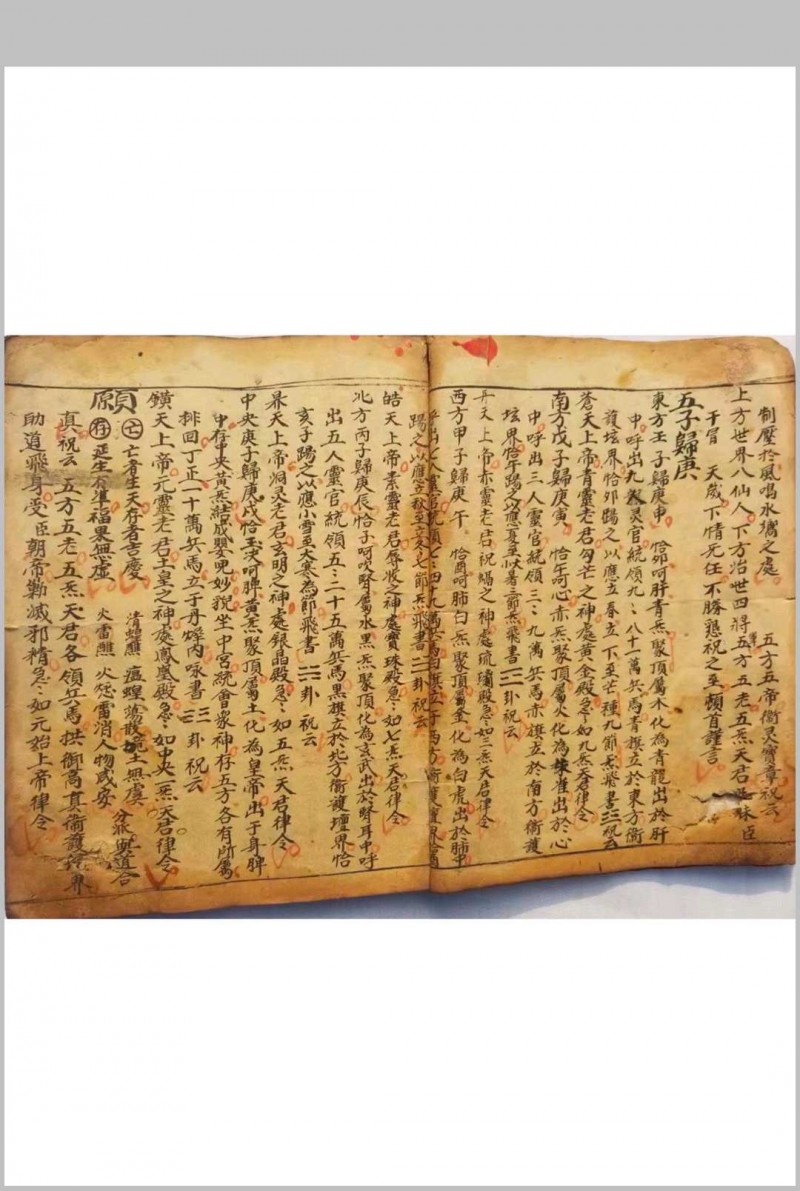 制壓於風鳴水嚮之處 五方五帝衛灵寶章祝云
上方世界八仙人下方治世四將五方五老五炁天君 臣
干冒 天威下情無任不勝懇祝之至頓首謹言
五子歸庚
東方壬子歸庚申 恰卯呵肝青炁聚頂屬木化為青龍出於肝
中呼出九 灵官統領九〻八十一萬兵馬青旗立於東方衛
護坛界恰卯踢之以應立春立下至芒種九節炁飛書☳祝云
蒼天上帝青靈老君勾芒之神處黃金殿急〻如九炁天君律令
南方戊子歸庚寅 恰午呵心赤炁聚頂屬火化為朱雀出於心
中呼出三人靈官統領三〻九萬兵馬赤旗立於南方衛護
坛界恰午踢之以應夏至 暑三節炁飛書☲卦祝云
丹天上帝赤靈老君祝融之神處琉璃殿急〻如三炁天君律令
西方甲子歸庚午 恰酉呵肺白炁聚頂屬金化為白虎出於肺中
呼出七人靈官統領七〻四十九萬兵馬白旗立于西方衛護壇界恰酉
踢之以應 秋至 冬七節炁飛書☱卦祝云
皓天上帝素靈老君辱收之神處寶珠殿急〻如七炁天君律令
北方丙子歸庚辰恰子呵吹腎屬水黑炁聚頂化為玄武出於腎耳中呼
出五人靈官統領五〻二十五萬兵馬黑旗立於北方衛護壇界恰
亥子踢之以應小雪至大寒為節飛書☵卦祝云
昊天上帝洞灵老君玄明之神處銀晶殿急〻如五炁天君律令
中央庚子歸庚戌恰玉 呵脾黃炁聚頂屬土化為皇帝出于身脾
中存中央黃炁結成嬰兒妙貌坐中宮統會眾神存五方各有所屬
排回丁正一十萬兵馬立于丹墀內咏書☷卦祝云
鐄天上帝元靈老君土皇之神處鳳凰殿急〻如中央一炁天君律令
願 亡 亡者生天存者吉慶 清蝗醮 瘟蝗蕩散 土無虞 分 與道合
存 延生有準福果無虛 火雷醮 火 雷消人物咸安
真祝云 五方五老五炁天君各領兵馬拱御高真衛護 界
助道飛身受臣朝帝勦滅邪精急〻如元始上帝律令